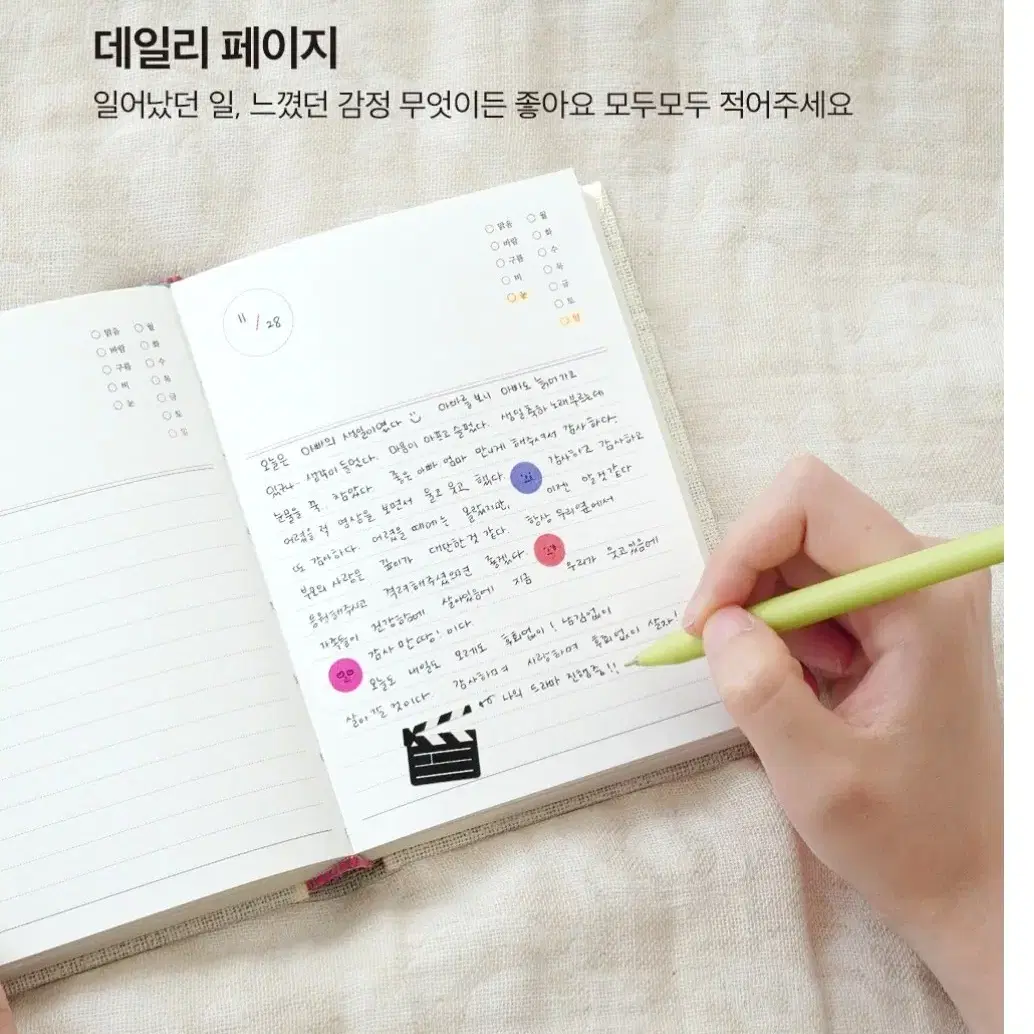 데일리 페이지
일어났던 일, 느꼈던 감정 무엇이든 좋아요 모두모두 적어주세요
맑음 월
바람 화
구름 수
비 목
눈 금
토
일
맑음 월
바람 화
구름 수
비 목
눈 금
토
일
11 / 28
오늘은 아빠의 생일이였다 아빠를 보니 아빠도 늙어가고
있구나 생각이 들었다. 마음이 아프고 슬펐다. 생일축하 노래부르는데
눈물을 꾹 참았다 좋은 아빠 엄마 만나게 해주셔서 감사하다.
어렸을 적 영상을 보면서 울고 웃고 했다. 감사하고 감사하고
또 감사하다. 어렸을 때에는 몰랐지만, 이젠 알 것 같다
부모의 사랑은 깊이가 대단한 것 같다. 항상 우리옆에서
응원해주시고 격려해주셨으면 좋겠다. 우리가 웃고있음에
가족들이 건강함에 살아있음에 지금
감사 만땅! 이다.
오늘도 내일도 모레도 후회없이! 남김없이
살아갈 것이다 감사하며 사랑하며 후회없이 살자!
나의 드라마 진행중!!